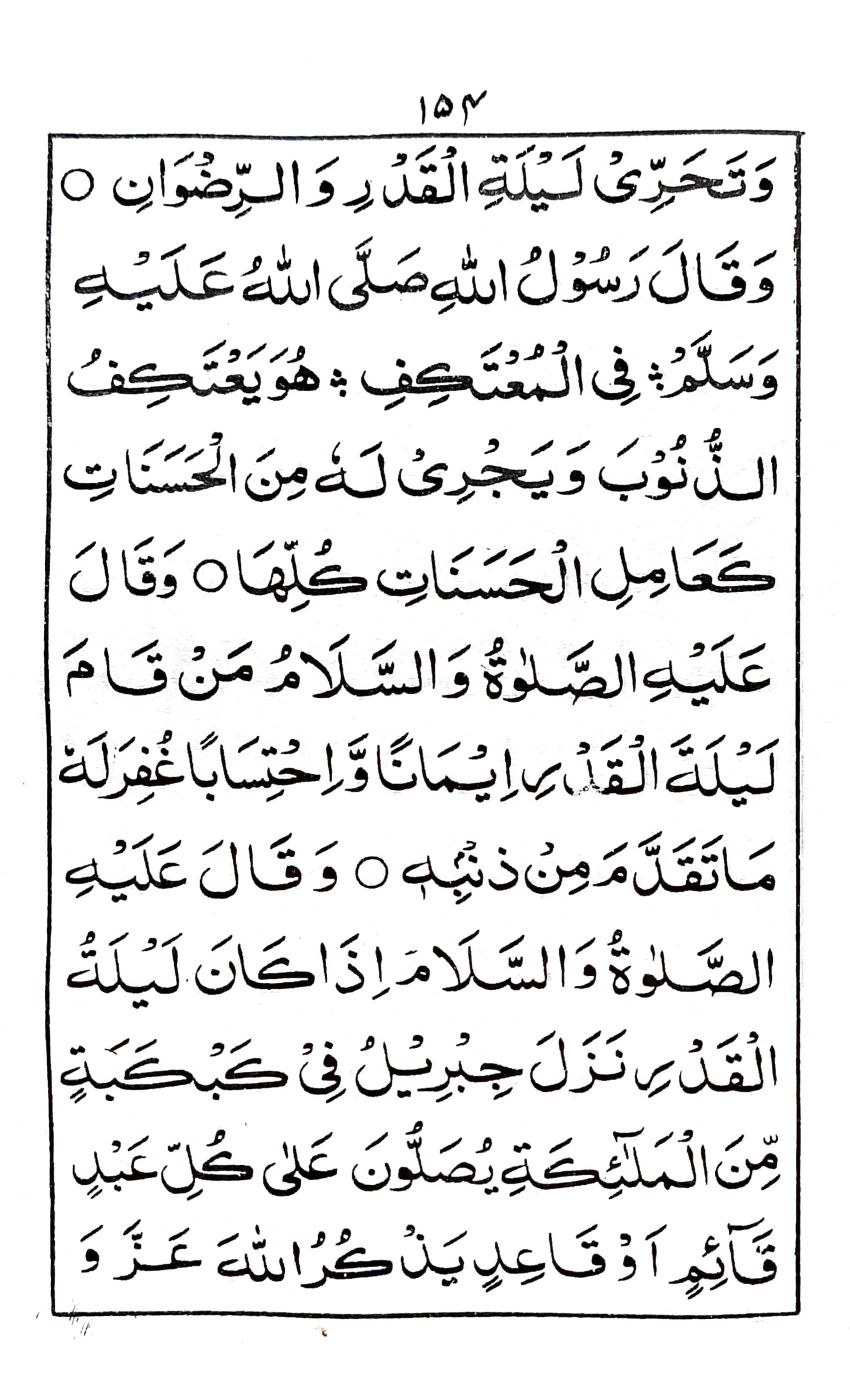 ۱۵۴
وَتَحَرِّىْ لَيْلَةِ الْقَدْرِ وَالرِّضْوَانِ ○
وَقَالَ رَسُوْلُ اللّٰهِ صَلَّى اللّٰهُ عَلَيْهِ
وَسَلَّمَ ؞ فِى الْمُعْتَكِفِ ؞ هُوَ يَعْتَكِفُ
الذُّنُوْبَ وَيَجْرِىْ لَهٗ مِنَ الْحَسَنَاتِ
كَعَامِلِ الْحَسَنَاتِ كُلِّهَا ○ وَقَالَ
عَلَيْهِ الصَّلٰوةُ وَالسَّلَامُ مَنْ قَامَ
لَيْلَةَ الْقَدْرِ اِيْمَانًا وَّاِحْتِسَابًا غُفِرَ لَهٗ
مَا تَقَدَّمَ مِنْ ذَنْبِهٖ ○ وَقَالَ عَلَيْهِ
الصَّلٰوةُ وَالسَّلَامُ اِذَا كَانَ لَيْلَةُ
الْقَدْرِ نَزَلَ جِبْرِيْلُ فِىْ كَبْكَبَةٍ
مِّنَ الْمَلٰٓئِكَةِ يُصَلُّوْنَ عَلٰى كُلِّ عَبْدٍ
قَآئِمٍ اَوْ قَاعِدٍ يَذْكُرُ اللّٰهَ عَزَّ وَ